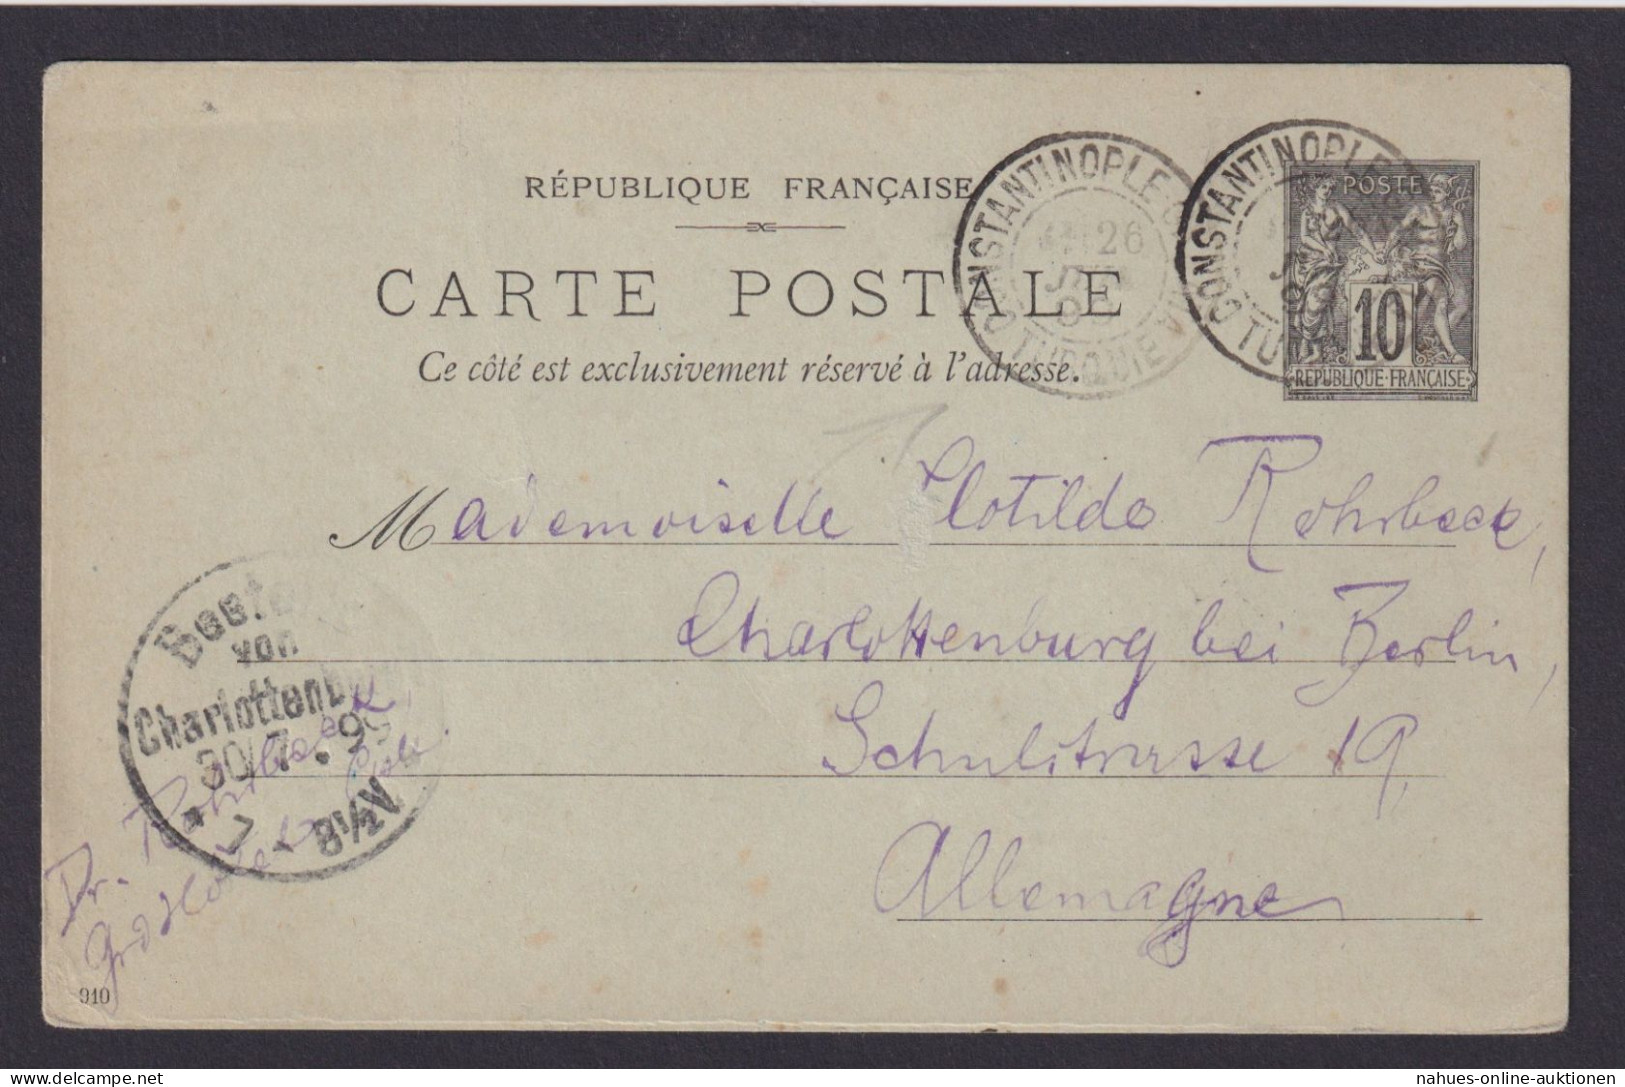 RÉPUBLIQUE FRANÇAISE
CARTE POSTALE
Ce côté est exclusivement réservé à l'adresse.
CONSTANTINOPLE
26
TURQUIE
CONSTANTINOPLE
POSTE
10
REPUBLIQUE·FRANÇAISE
Mademoiselle Clotilde Rohrbeck,
Charlottenburg bei Berlin,
Schulstrasse 19,
Allemagne
von
Charlottenburg
30/7. 99
7 - 8½V
Dr. Rohrbeck,
910
nahues-online-auktionen